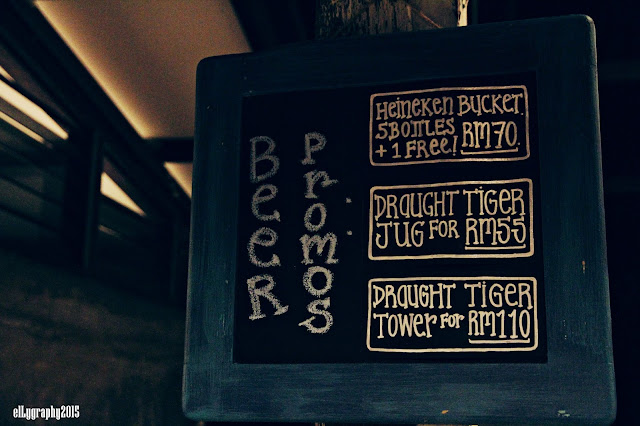 Beer
Promos
Heineken Bucket
5 Bottles
+ 1 Free! RM70
Draught Tiger
Jug for RM55
Draught Tiger
Tower for RM110
ell.ygraphy2015